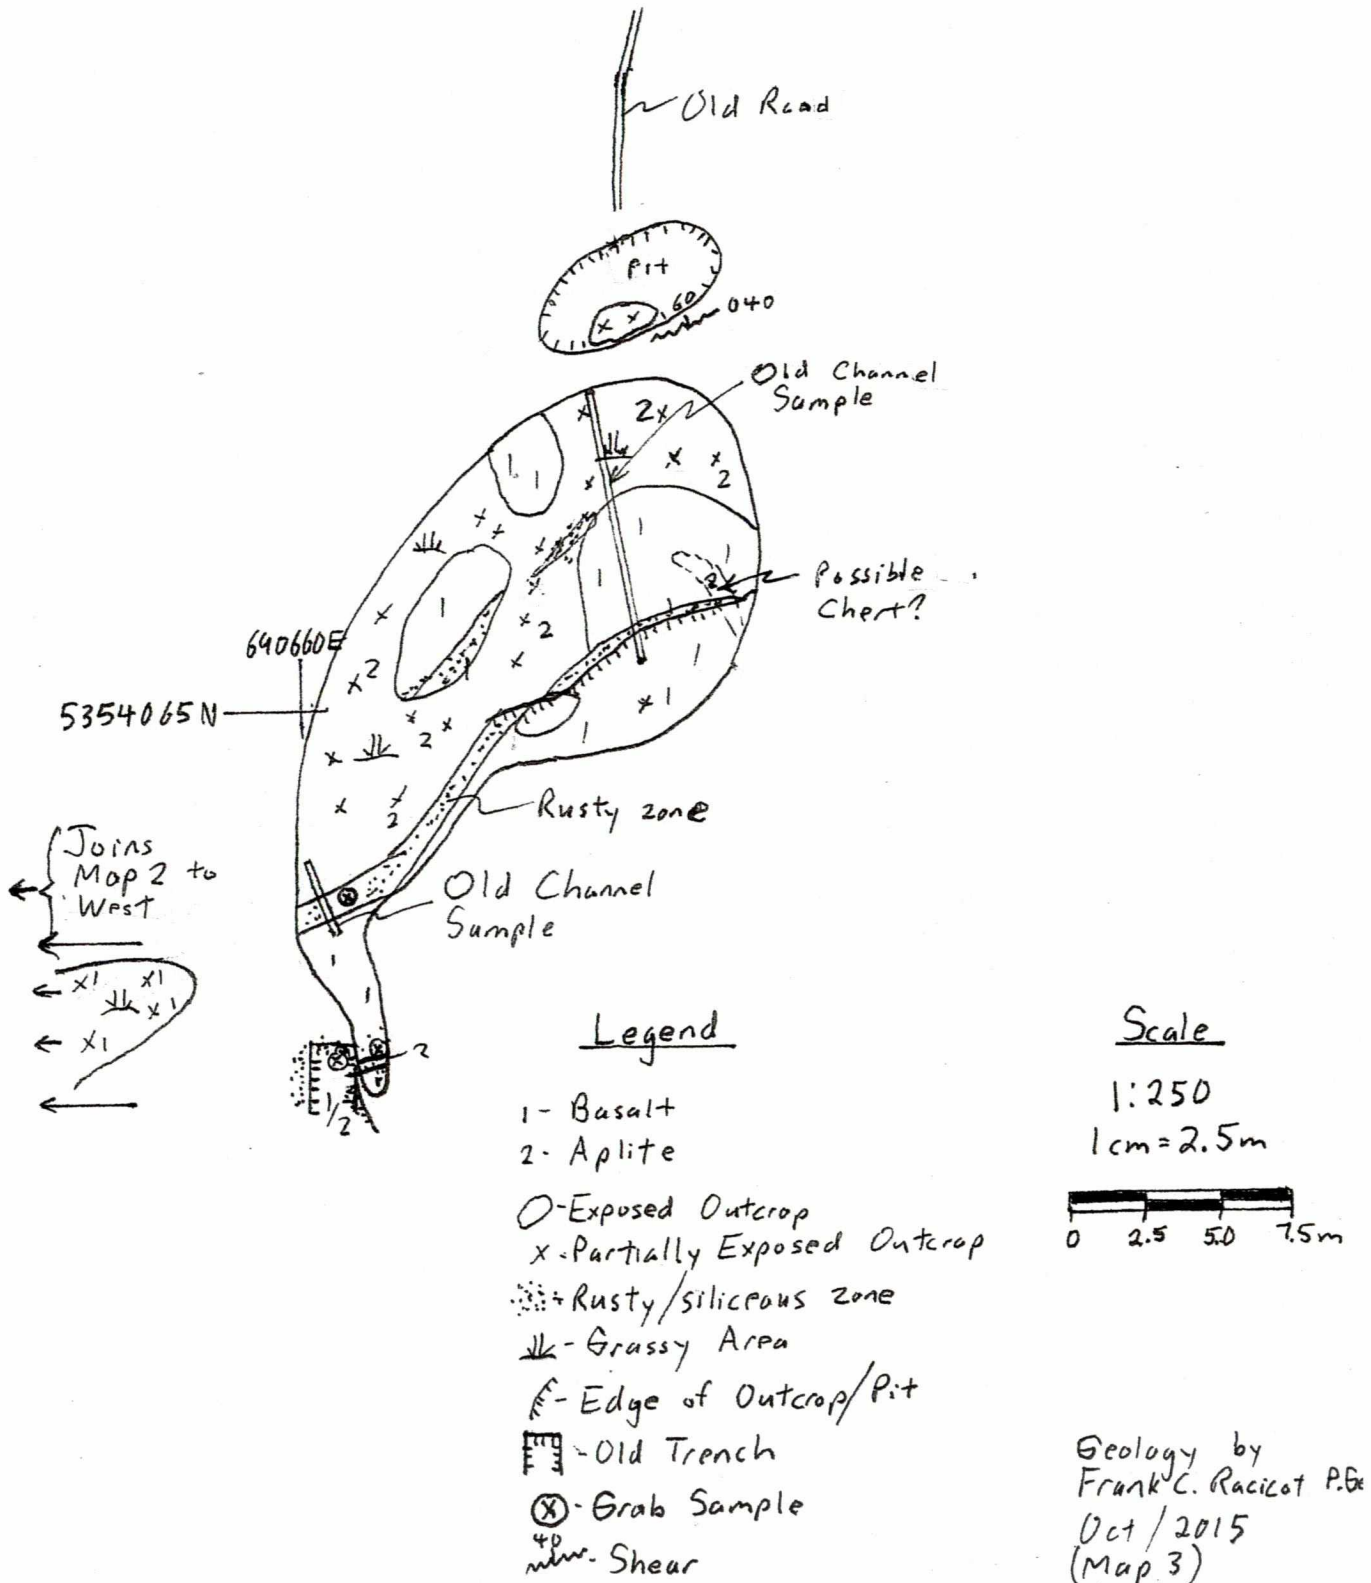 Old Road
Pit
60
040
Old Channel
Sample
2x
2
1
1
1
1
1
2
Possible
Chert?
1
2
640660E
5354065N
x2
1
x1
1
2
2
Rusty zone
Joins
Map 2 to
West
Old Channel
Sample
1
1
x1
x1
x1
x1
2
1/2
Legend
1- Basalt
2- Aplite
-Exposed Outcrop
x-Partially Exposed Outcrop
- Rusty/siliceous zone
- Grassy Area
- Edge of Outcrop/Pit
- Old Trench
- Grab Sample
40
- Shear
Scale
1:250
1cm = 2.5m
0 2.5 5.0 7.5m
Geology by
Frank C. Racicot P.Ge
Oct/2015
(Map 3)